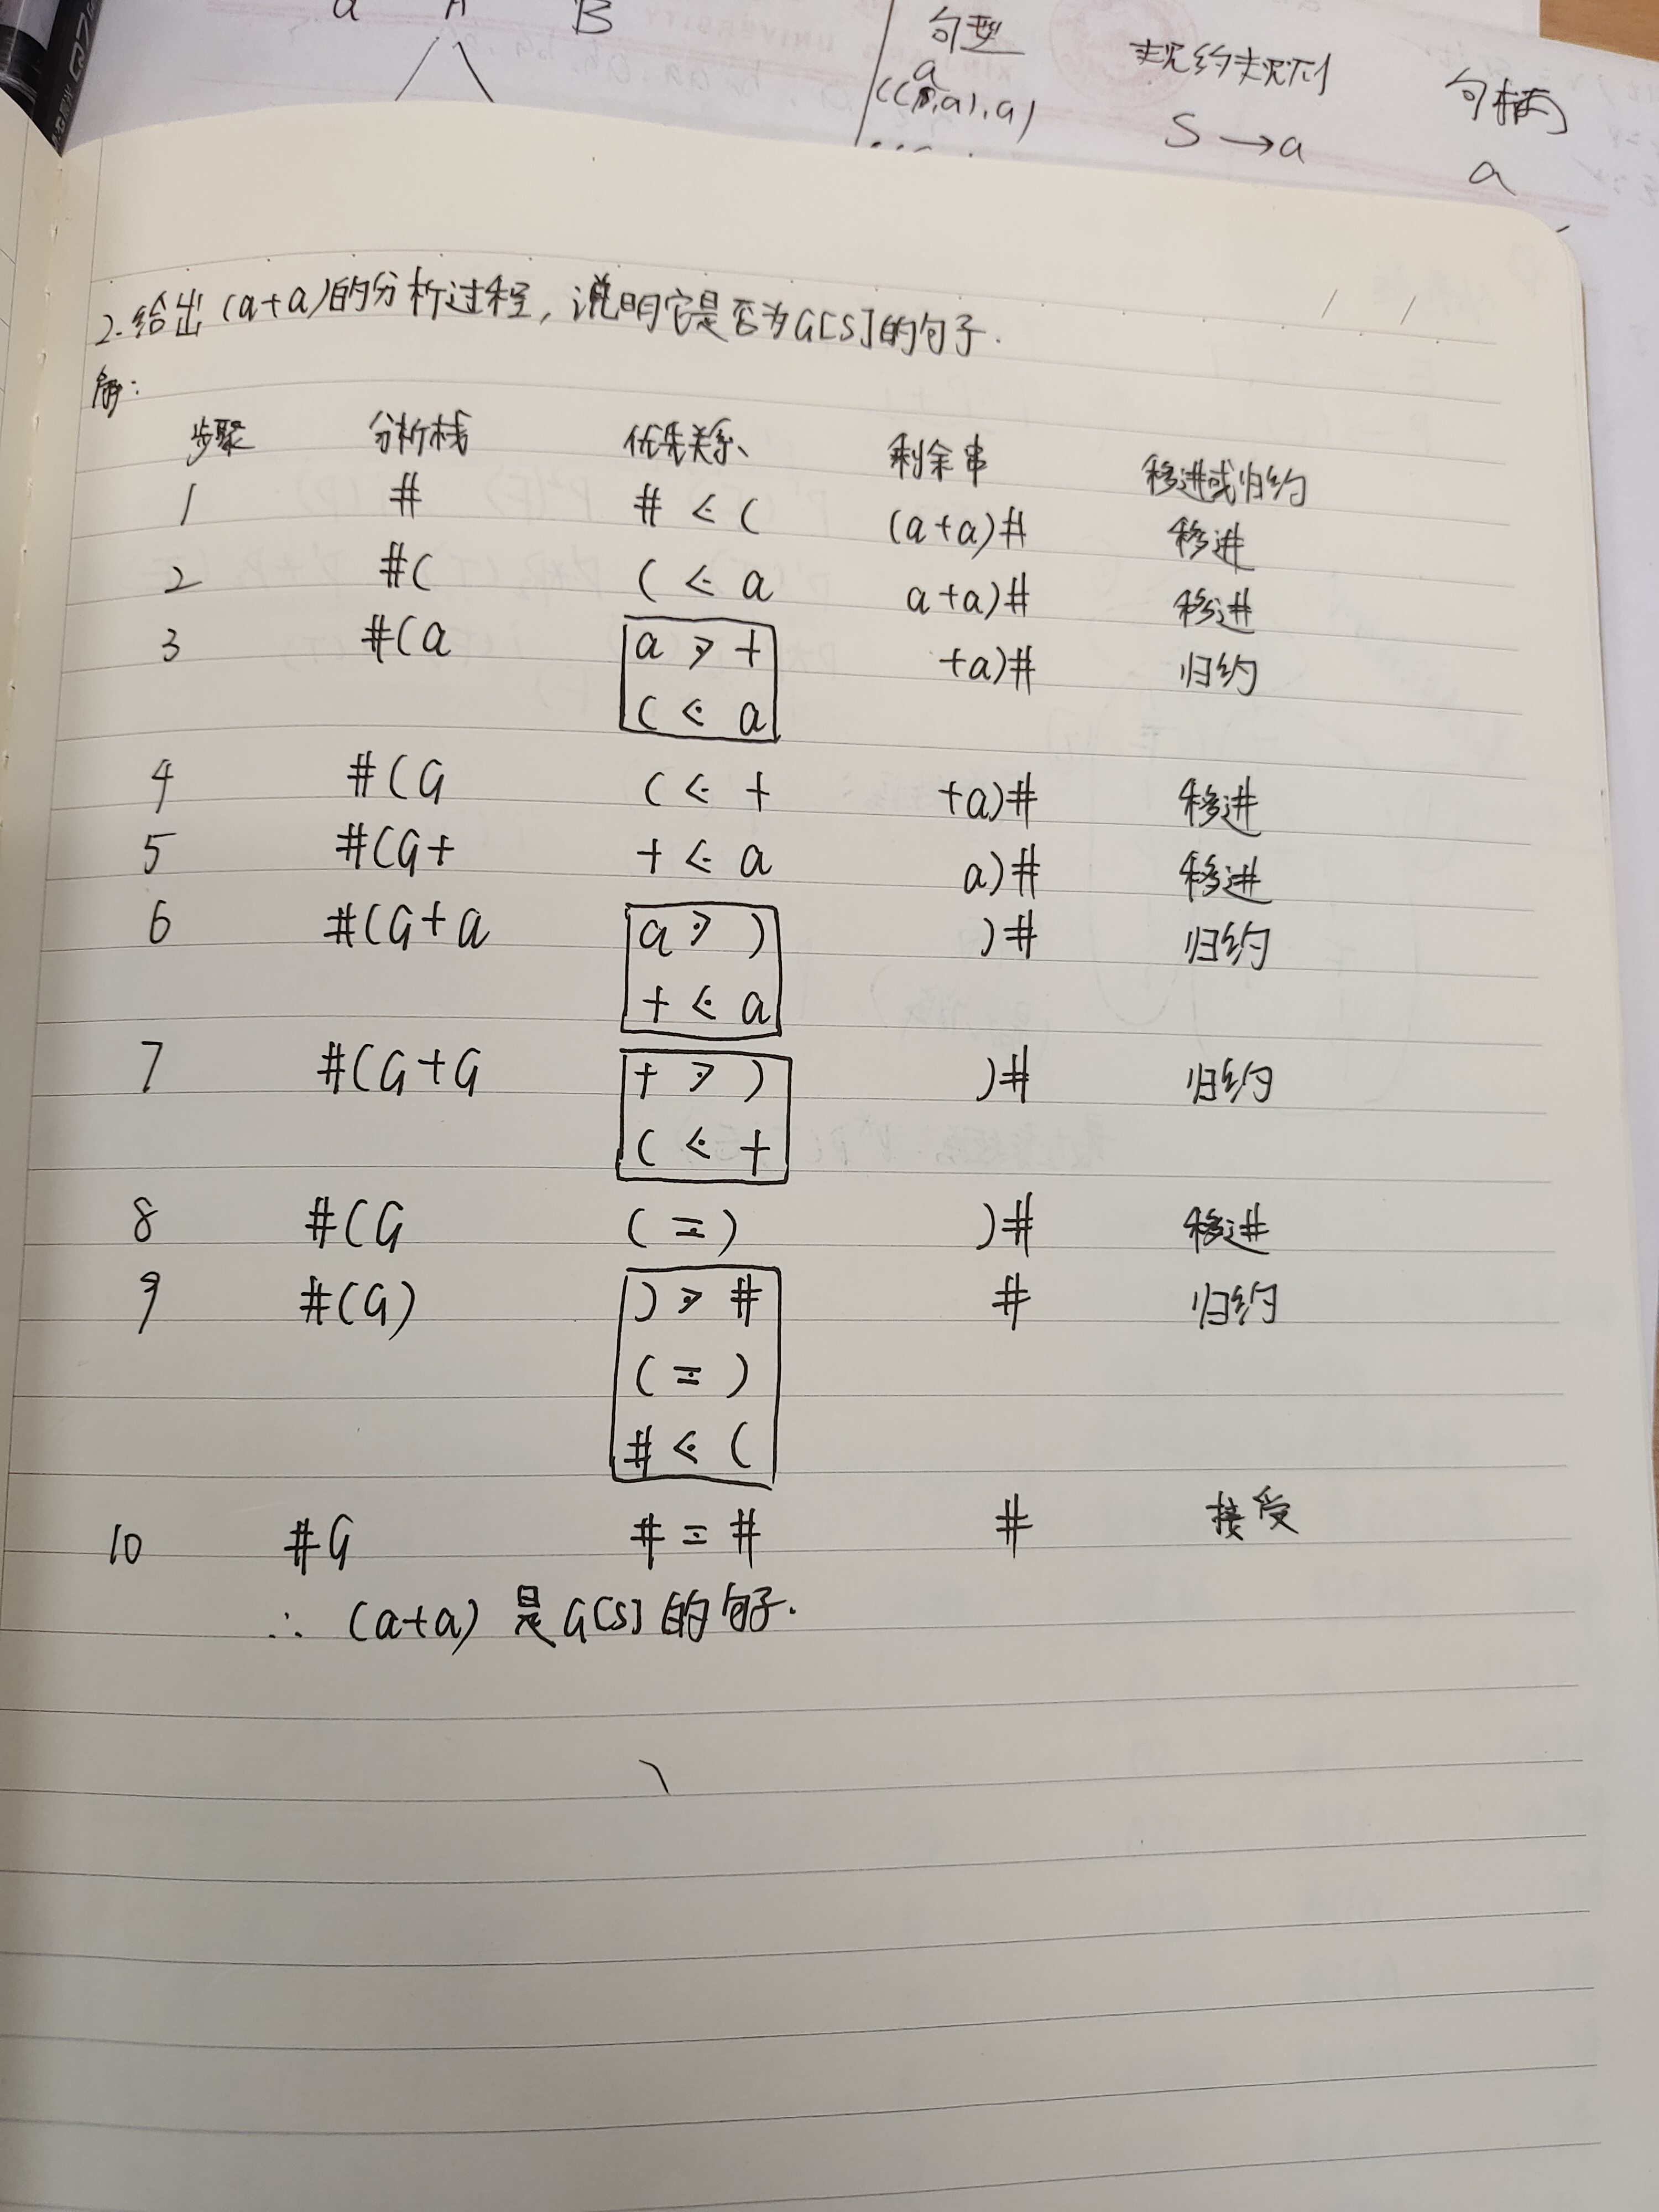 a A B
句型
规约规则
句柄
a
((S,a),a)
S→a
a
2.给出(a+a)的分析过程,说明它是否为G[S]的句子.
解:
步聚 分析栈 优先关系、 剩余串 移进或归约
1 # # ⋖ ( (a+a)# 移进
2 #( ( ⋖ a a+a)# 移进
3 #(a a ⋗ + +a)# 归约
( ⋖ a
4 #(G ( ⋖ + +a)# 移进
5 #(G+ + ⋖ a a)# 移进
6 #(G+a a ⋗ ) )# 归约
+ ⋖ a
7 #(G+G + ⋗ ) )# 归约
( ⋖ +
8 #(G ( ≖ ) )# 移进
9 #(G) ) ⋗ # # 归约
( ≖ )
# ⋖ (
10 #G # ≖ # # 接受
∴ (a+a) 是G[S]的句子.